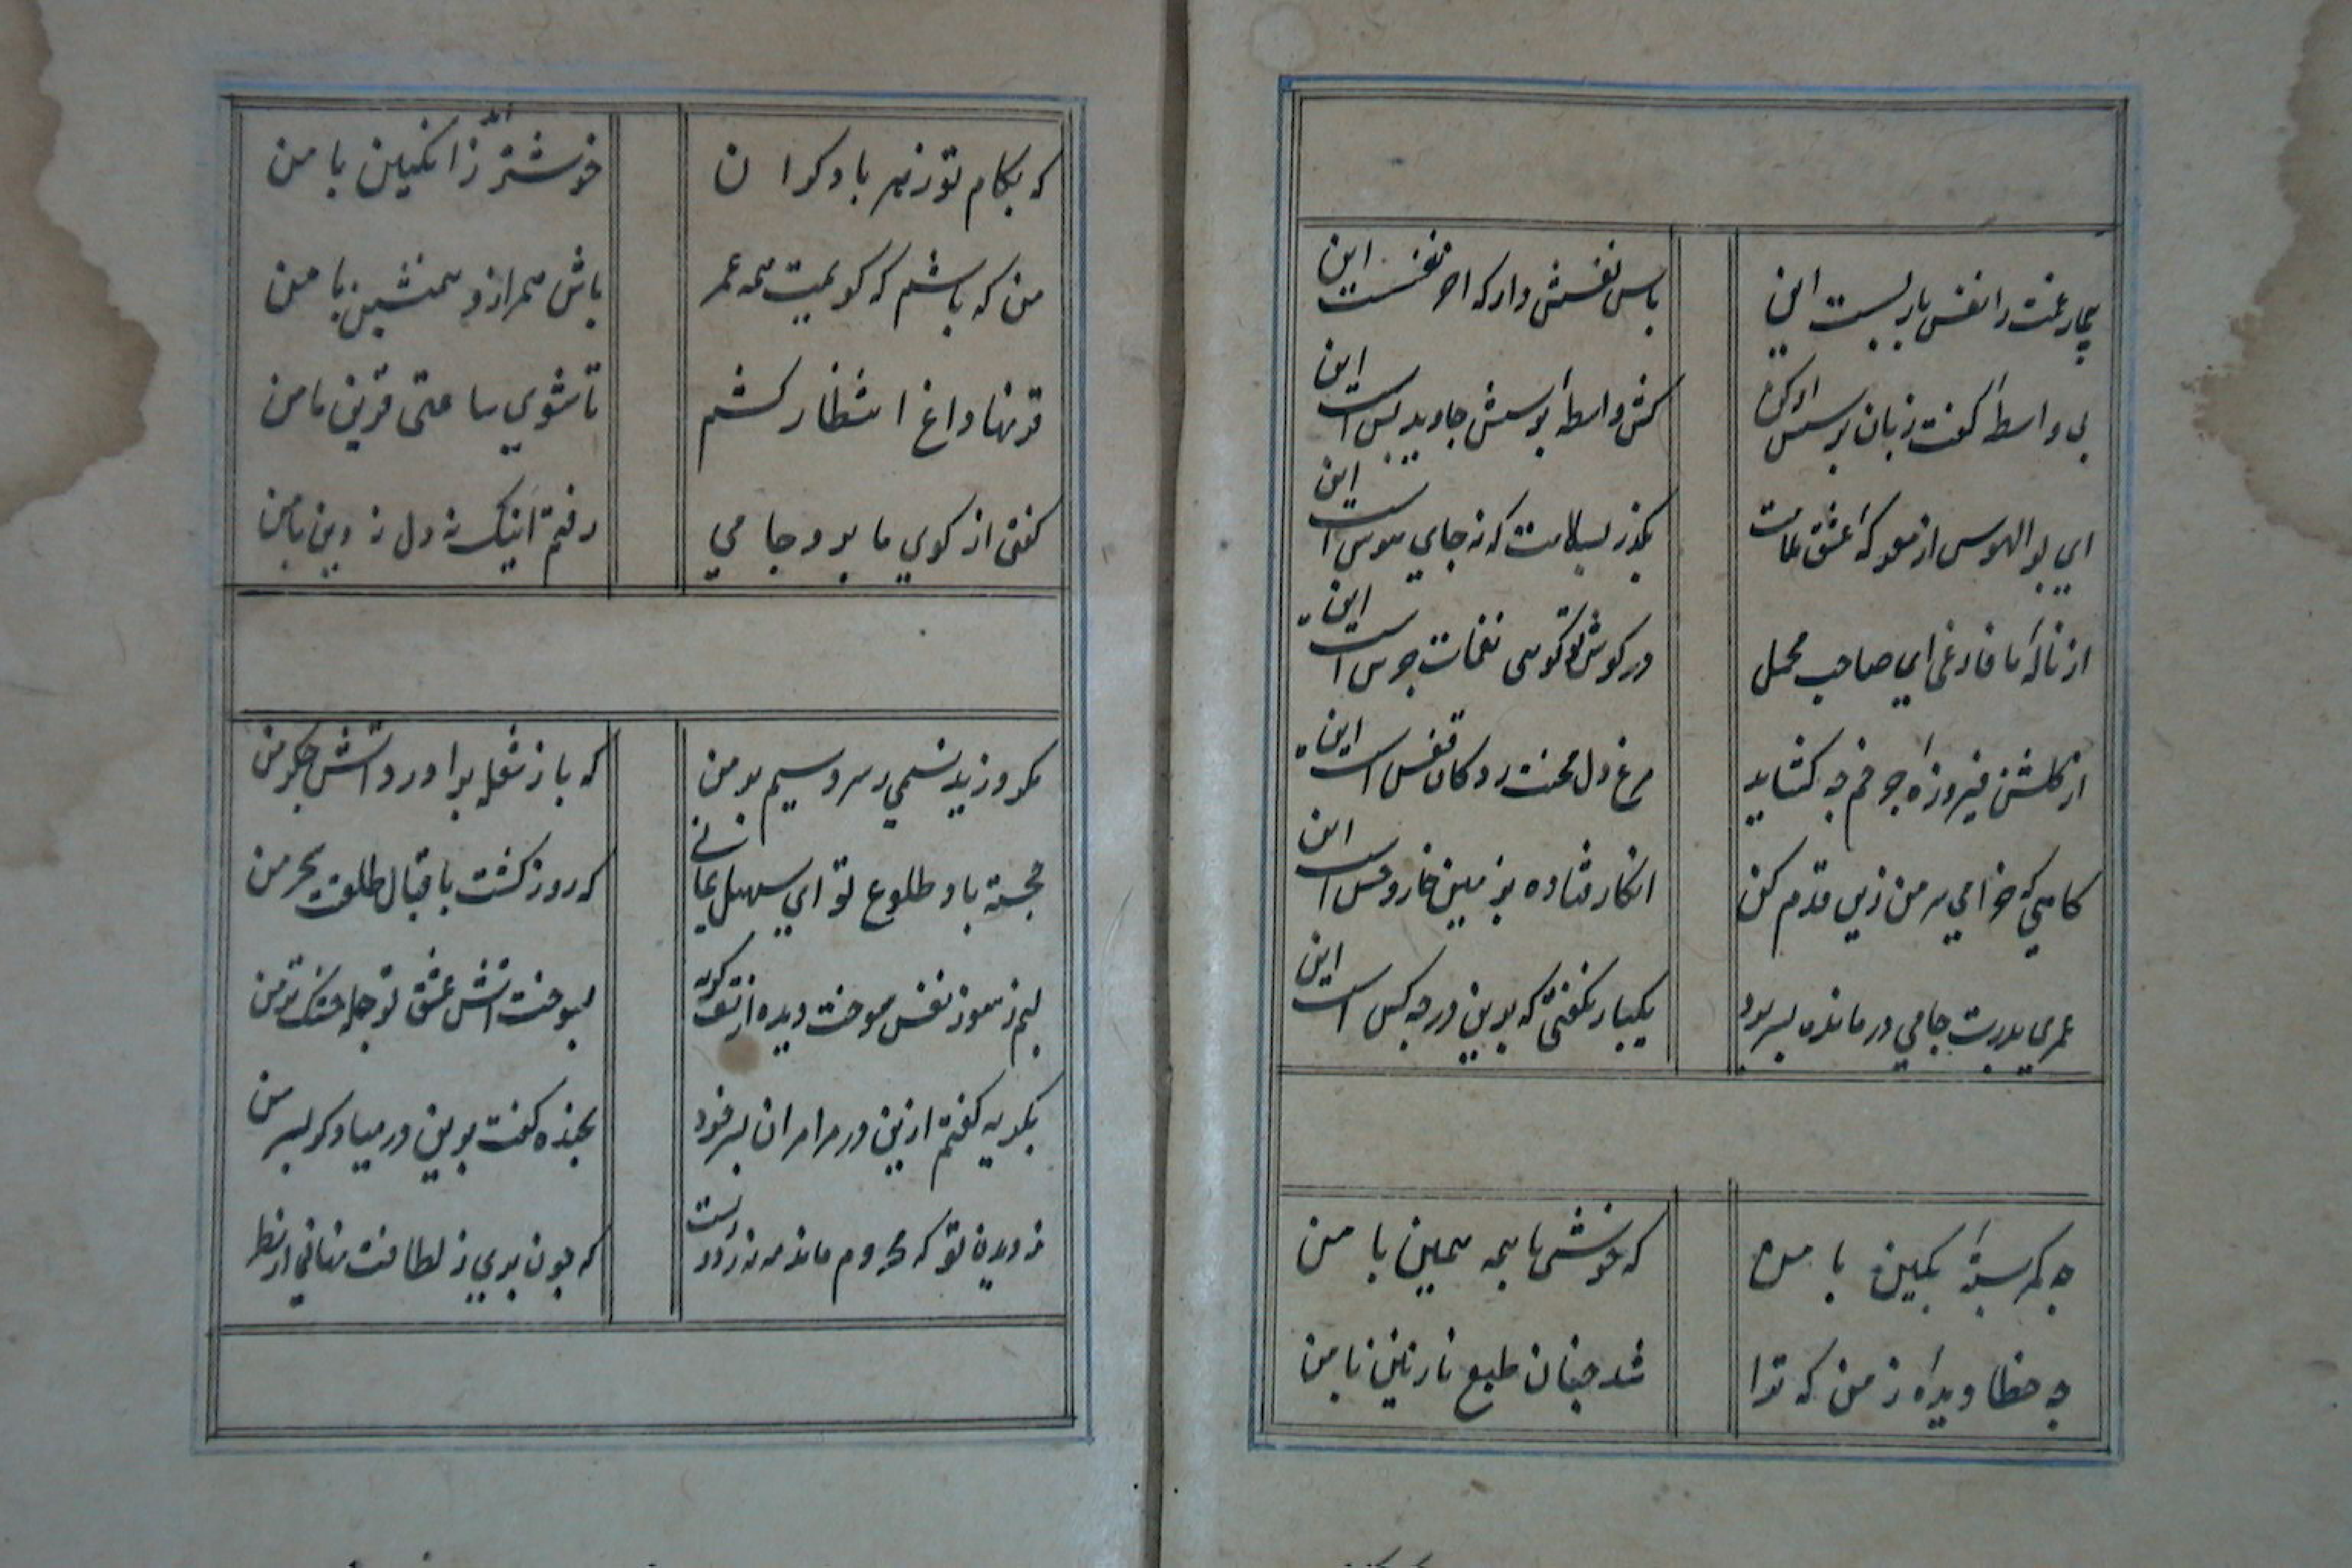 بیمار غمت را نفس باز پسست این
پاس نفسش دار که آخر نفسست این
بی واسطه گفت زبان پرسش او کن
کش واسطه پرسش جاوید بس است این
ای بوالهوس از معرکه عشق ملامت
بگذر بسلامت که نه جای هوس است این
از ناله ما فارغی ای صاحب محمل
در گوش تو گویی نغمات جرس است این
از گلشن فیروزه چرخم چه گشاید
مرغ دل محنت زدگان قفس است این
گاهی که خرامی بر من زین قدم کن
انگار فتاده بزمین خار و خس است این
عمری بدرت جامی درمانده بسر برد
یکبار نگفتی که بدین در چه کس است این
چه کمر بسته بکین با من
که خوشی با همه همین با من
چه خطا دیده ز من که ترا
شد چنان طبع نازنین با من
که بکام تو زهر با دگران
خوشتر آید ز انگبین با من
من که باشم که گویمت همه عمر
باش همراز و همنشین با من
قرنها داغ انتظار کشم
تا شوی ساعتی قرین با من
گفتی از کوی ما برو جامی
رفتم اینک نه دل نه دین با من
مگر وزید نسیمی ز سرو سیم بر من
که باز شعله برآورد آتش جگر من
خجسته باد طلوع تو ای سهیل یمانی
که روز گشت باقبال طلعتت سحر من
لبم ز سوز نفس سوخت دیده از تف گریه
بسوخت آتش عشق تو جمله خشک و تر من
بگریه گفتم ازین در مرا مران بسر خود
بخنده گفت برین در میا دگر بسر من
ز دیدن تو که محروم مانده‌ام نه ز دوریست
که چون پری ز لطافت نهانی از نظر